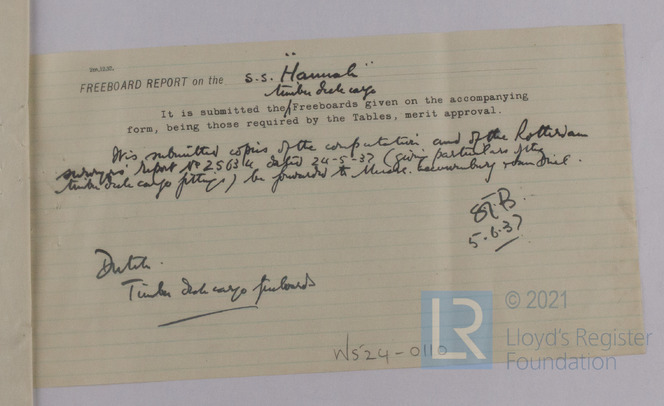 FREEBOARD REPORT on the S.S. "Hannah"
timber deck cargo
It is submitted the Freeboards given on the accompanying
form, being those required by the Tables, merit approval.
It is submitted copies of the computation and of the Rotterdam
surveyors' report No 25614 dated 24-5-37 (giving particulars of the
timber deck cargo fittings) be forwarded to Messrs.
5.6.37
Dutch.
Timber deck cargo freeboards
W524-0110
LR
© 2021
Lloyd's Register
Foundation